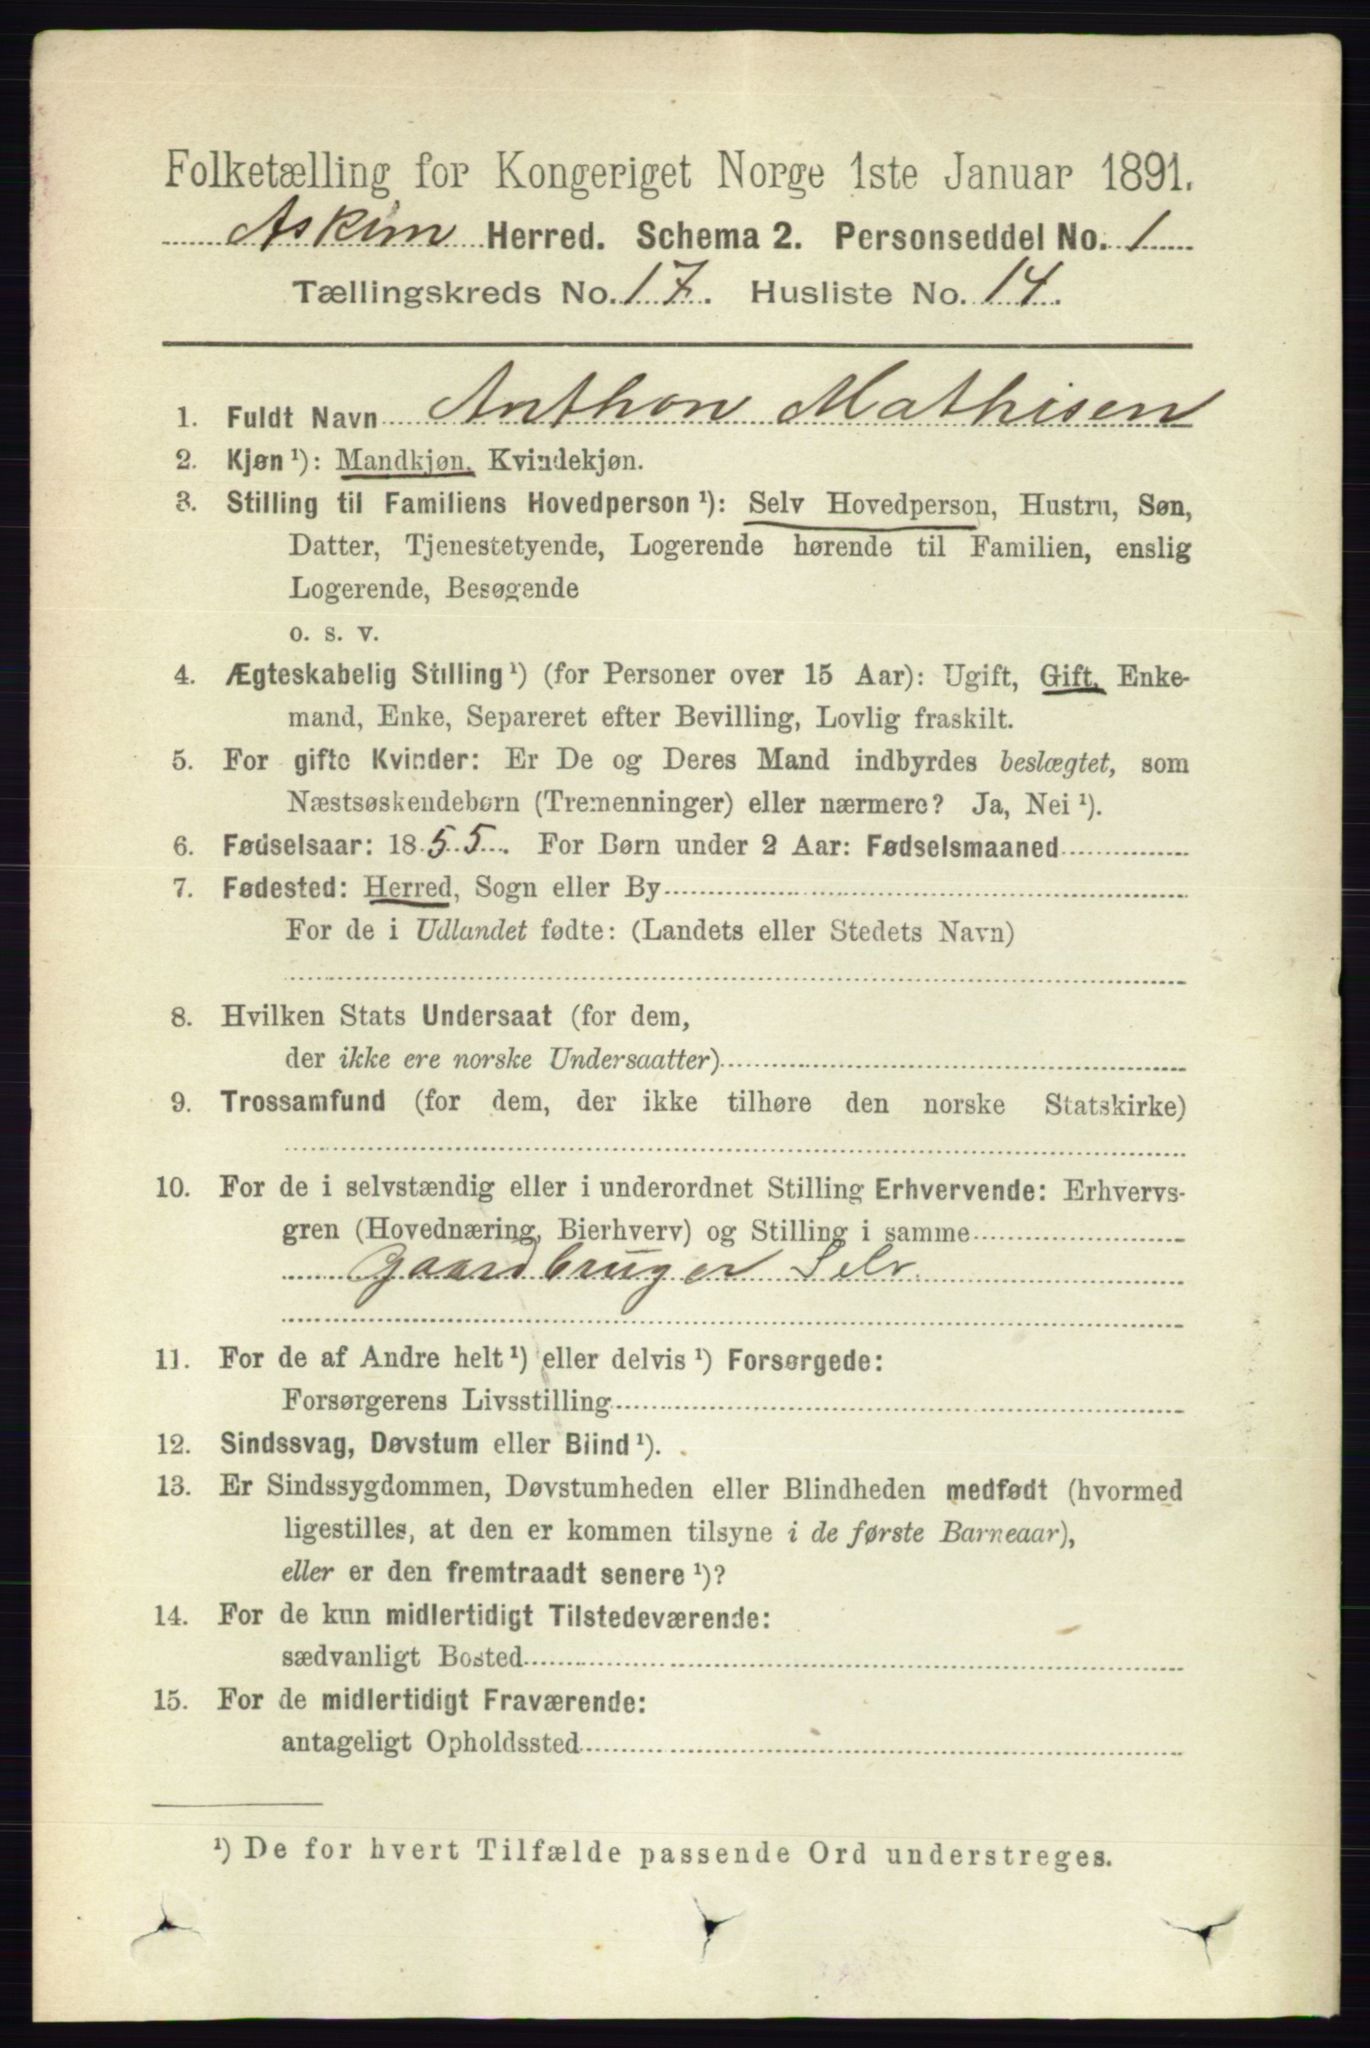 Folketælling for Kongeriget Norge 1ste Januar 1891.
Askim Herred. Schema 2. Personseddel No. 1
Tællingskreds No. 17. Husliste No. 14.
1. Fuldt Navn Anthon Mathisen
2. Kjøn ¹): Mandkjøn, Kvindekjøn.
3. Stilling til Familiens Hovedperson ¹): Selv Hovedperson, Hustru, Søn,
Datter, Tjenestetyende, Logerende hørende til Familien, enslig
Logerende, Besøgende
o. s. v.
4. Ægteskabelig Stilling ¹) (for Personer over 15 Aar): Ugift, Gift, Enke-
mand, Enke, Separeret efter Bevilling, Lovlig fraskilt.
5. For gifte Kvinder: Er De og Deres Mand indbyrdes beslægtet, som
Næstsøskendebørn (Tremenninger) eller nærmere? Ja, Nei ¹).
6. Fødselsaar: 1855. For Børn under 2 Aar: Fødselsmaaned
7. Fødested: Herred, Sogn eller By
For de i Udlandet fødte: (Landets eller Stedets Navn)
8. Hvilken Stats Undersaat (for dem,
der ikke ere norske Undersaatter)
9. Trossamfund (for dem, der ikke tilhøre den norske Statskirke)
10. For de i selvstændig eller i underordnet Stilling Erhvervende: Erhvervs-
gren (Hovednæring, Bierhverv) og Stilling i samme
Gaardbruger Selv
11. For de af Andre helt ¹) eller delvis ¹) Forsørgede:
Forsørgerens Livsstilling
12. Sindssvag, Døvstum eller Blind ¹).
13. Er Sindssygdommen, Døvstumheden eller Blindheden medfødt (hvormed
ligestilles, at den er kommen tilsyne i de første Barneaar),
eller er den fremtraadt senere ¹)?
14. For de kun midlertidigt Tilstedeværende:
sædvanligt Bosted
15. For de midlertidigt Fraværende:
antageligt Opholdssted
¹) De for hvert Tilfælde passende Ord understreges.